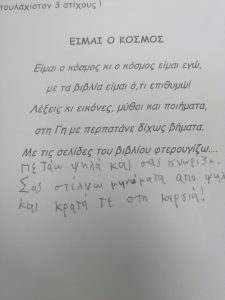 τουλάχιστον 3 στίχους !
ΕΙΜΑΙ Ο ΚΟΣΜΟΣ
Είμαι ο κόσμος κι ο κόσμος είμαι εγώ,
με τα βιβλία είμαι ό,τι επιθυμώ!
Λέξεις κι εικόνες, μύθοι και ποιήματα,
στη Γη με περπατάνε δίχως βήματα.
Με τις σελίδες του βιβλίου φτερουγίζω....
Πετάω ψηλά και σας γνωρίζω.
Σας στέλνω μηνύματα απο ψηλ
και κρατά τε στη καρδιά!